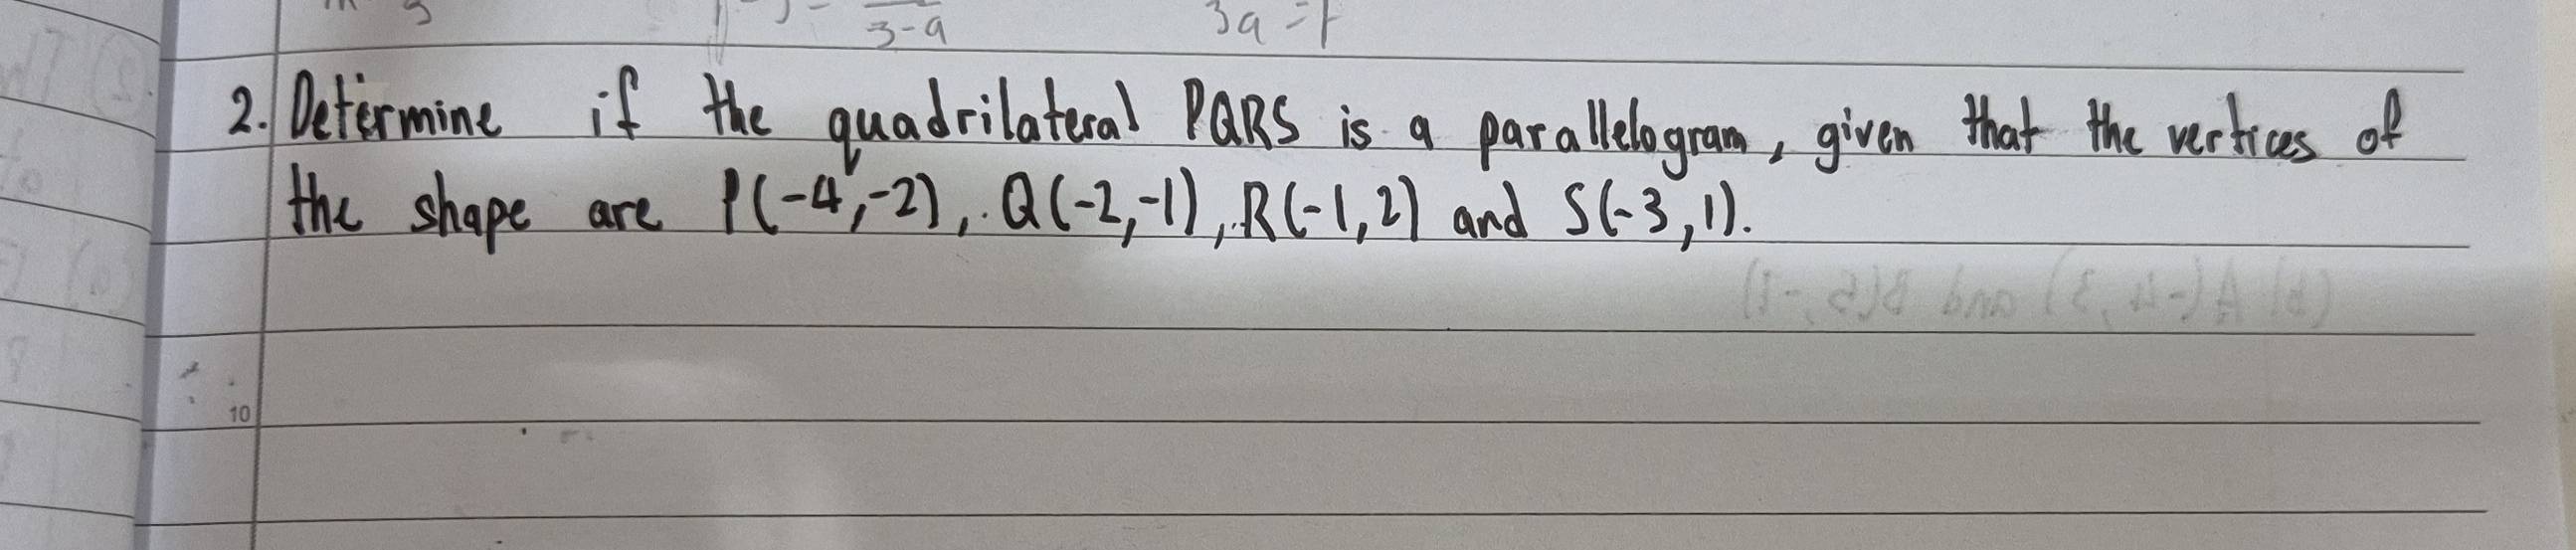 3-a 3a =1
2. Determine if the quadrilateral PQRS is a parallelogram, given that the vertices of
the shape are P(-4,-2), Q(-2,-1), R(-1,2) and S(-3,1).
(b) A(-4,3) and B(5,-1)
10